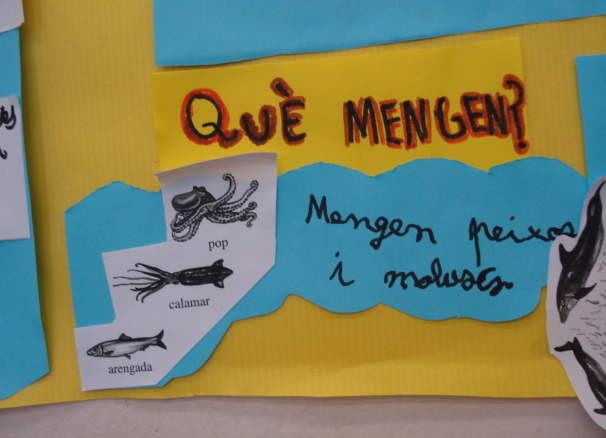 QUÈ MENGEN?
pop
calamar
arengada
Mengen peixos
i moluscs